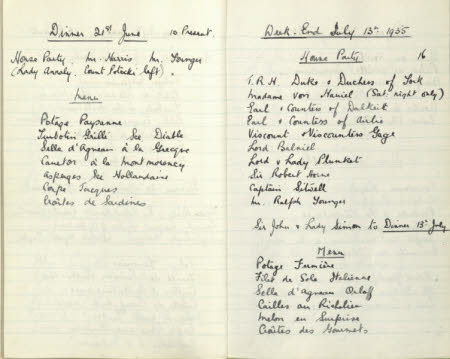 Dinner 21st June 10 Present.
House Party. Mr. Harris Mr. Younger
(Lady Annaly. Count Potocki left).
Menu
Potage Paysanne
Turbotin Grillé Sce Diable
Selle d'Agneau à la Grecque
Caneton à la Montmorency
Asperges Sce Hollandaise
Coupe Jacques
Croûtes de Sardines
Week-End July 13th 1935
House Party 16
T.R.H. Duke & Duchess of York
Madame von Haniel (Sat: night only)
Earl & Countess of Dalkeith
Earl & Countess of Airlie
Viscount & Viscountess Gage
Lord Balniel
Lord & Lady Plunket
Sir Robert Horne
Captain Sitwell
Mr. Ralph Younger
Sir John & Lady Simon to Dinner 13th July
Menu
Potage Fermière
Filet de Sole Italienne
Selle d'Agneau Orloff
Cailles au Richelieu
Melon en Surprise
Croûtes des Gourmets